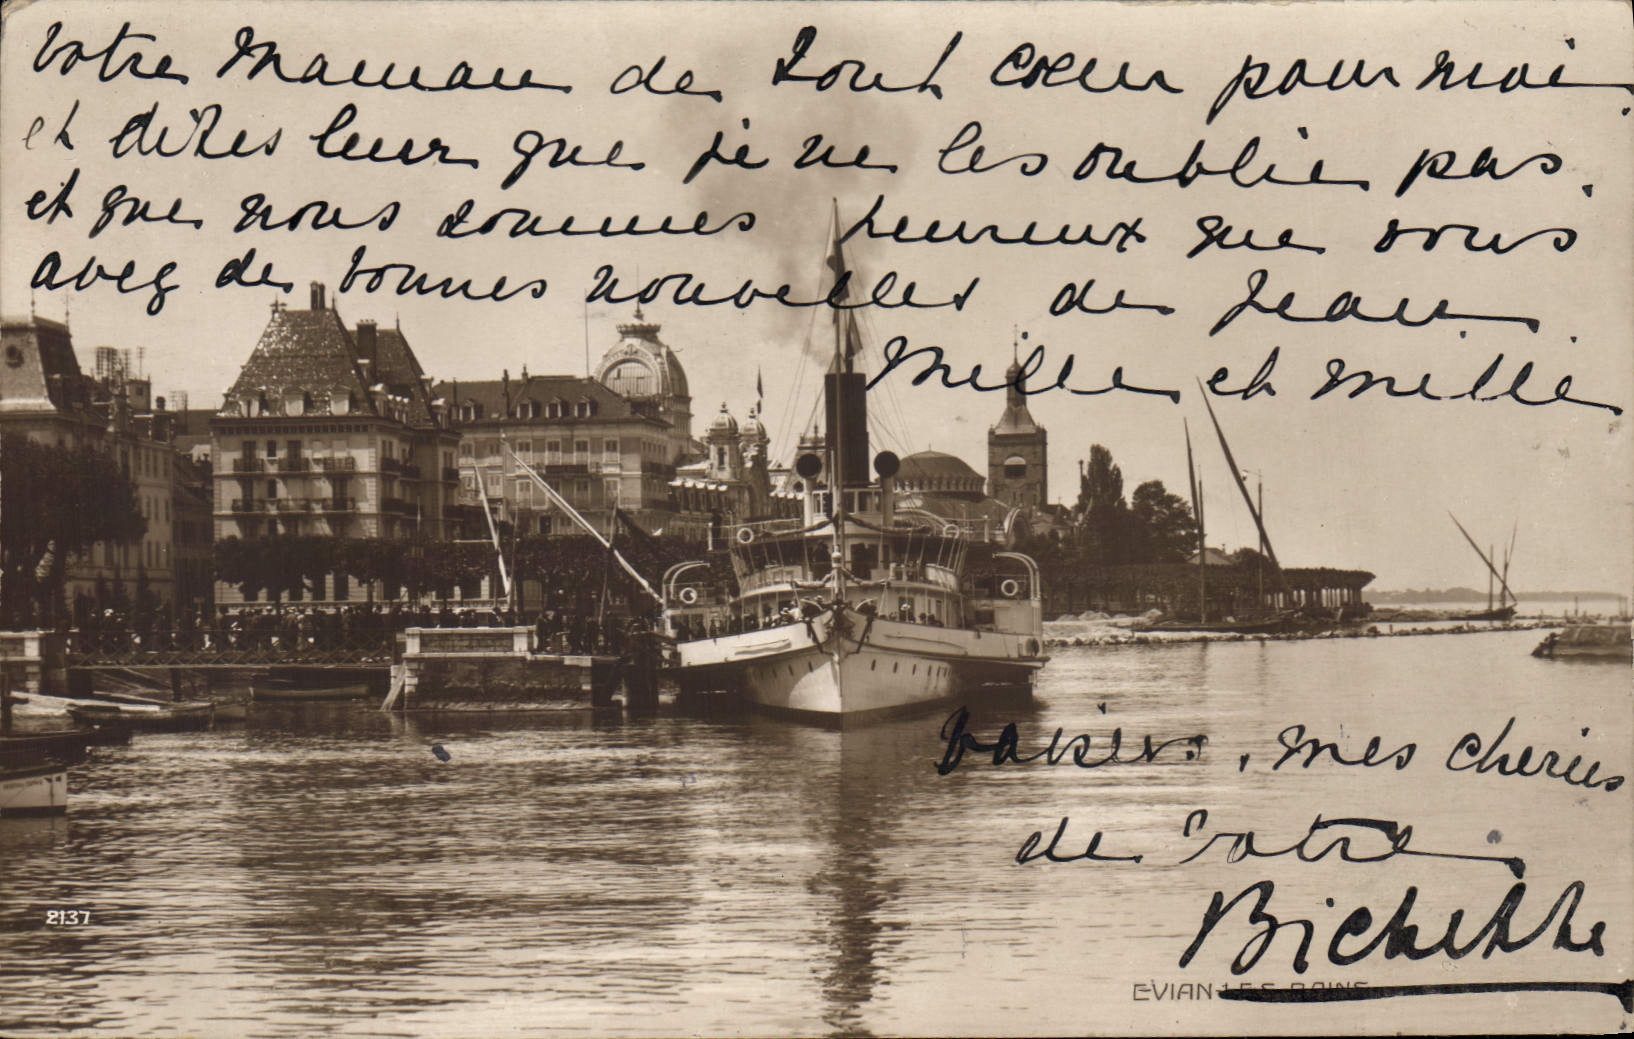 votre Maman de tout cœur pour moi.
et dites leur que je ne les oublie pas,
et que nous sommes heureux que vous
avez de bonnes nouvelles de Jean.
Mille et mille
baisers, mes cheries
de votre
Bichette
2137
EVIAN-LES-BAINS